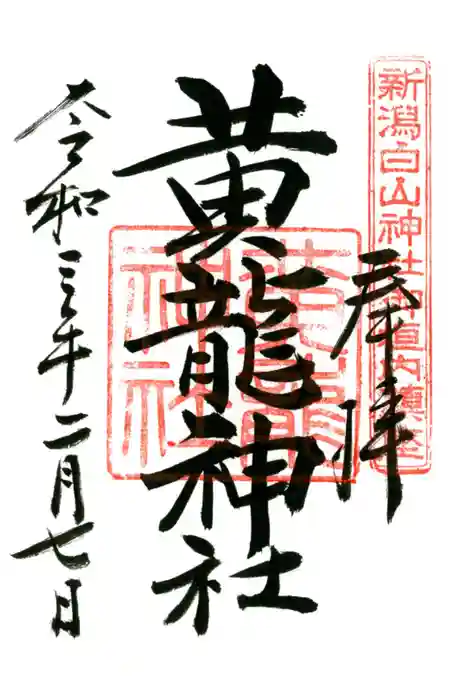 新潟白山神社御垣内鎮座
奉拝
黄龍神社
黄龍
神社
令和三年二月七日